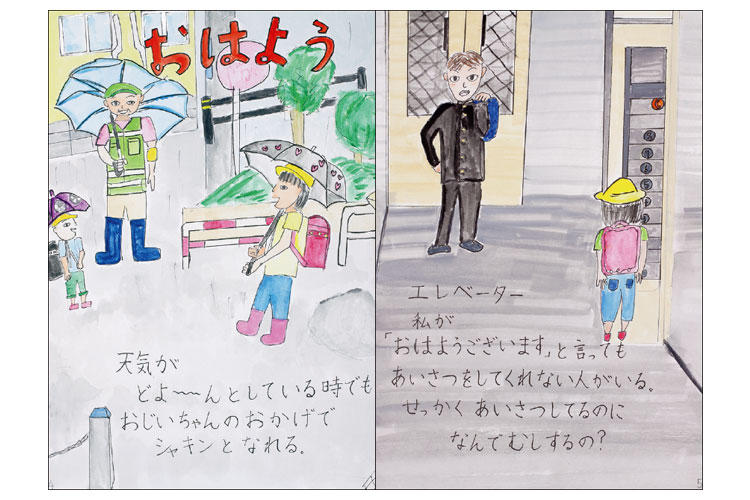 おはよう
天気が
どよ〜〜んとしている時でも
おじいちゃんのおかげで
シャキンとなれる。
エレベーター
私が
「おはようございます」と言っても
あいさつをしてくれない人がいる。
せっかくあいさつしてるのに
なんでむしするの?
5